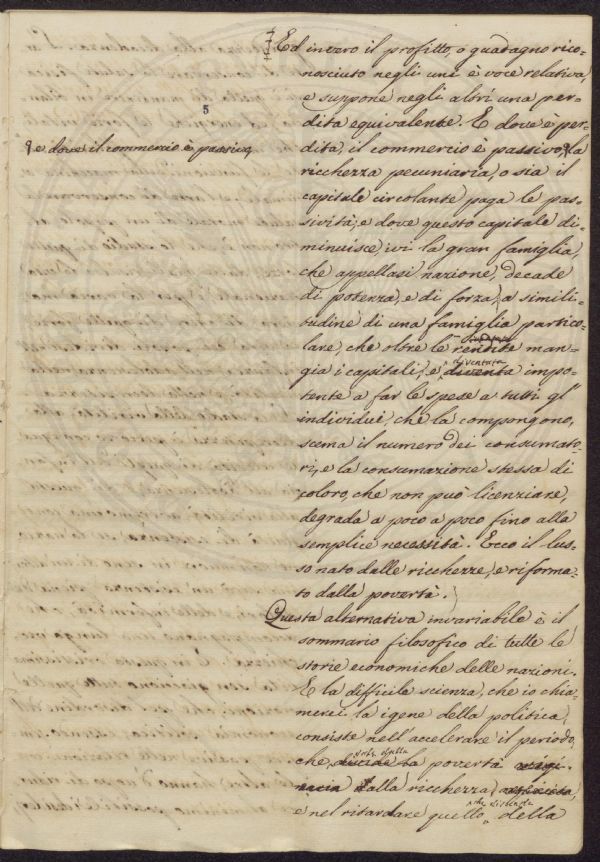 5
e dove il commercio è passivo,
Ed invero il profitto, o guadagno rico=
nosciuto negli uni è voce relativa,
e suppone negli altri una per=
dita equivalente. E dove è per=
dita, il commercio è passivo, la
ricchezza pecuniaria, o sia il
capitale circolante paga le pas=
sività; e dove questo capitale di=
minuisce, ivi la gran famiglia,
che appellasi nazione, decade
di potenza, e di forza, a simili=
tudine di una famiglia partico=
lare, che oltre le rendite man=
gia i capitali, e diventata
diventa impo=
tente a far le spese a tutti gl'
individui, che la compongono,
scema il numero dei consumato=
ri, e la consumazione stessa di
coloro, che non può licenziare,
degrada a poco a poco fino alla
semplice necessità. Ecco il lus=
so nato dalle ricchezze, e riforma=
to dalla povertà.
Questa alternativa invariabile è il
sommario filosofico di tutte le
storie economiche delle nazioni.
E la difficile scienza, che io chia=
merei la igene della politica,
consiste nell'accelerare il periodo,
che dalla povertà
alla ricchezza,
e nel ritardare quello, che discende
della